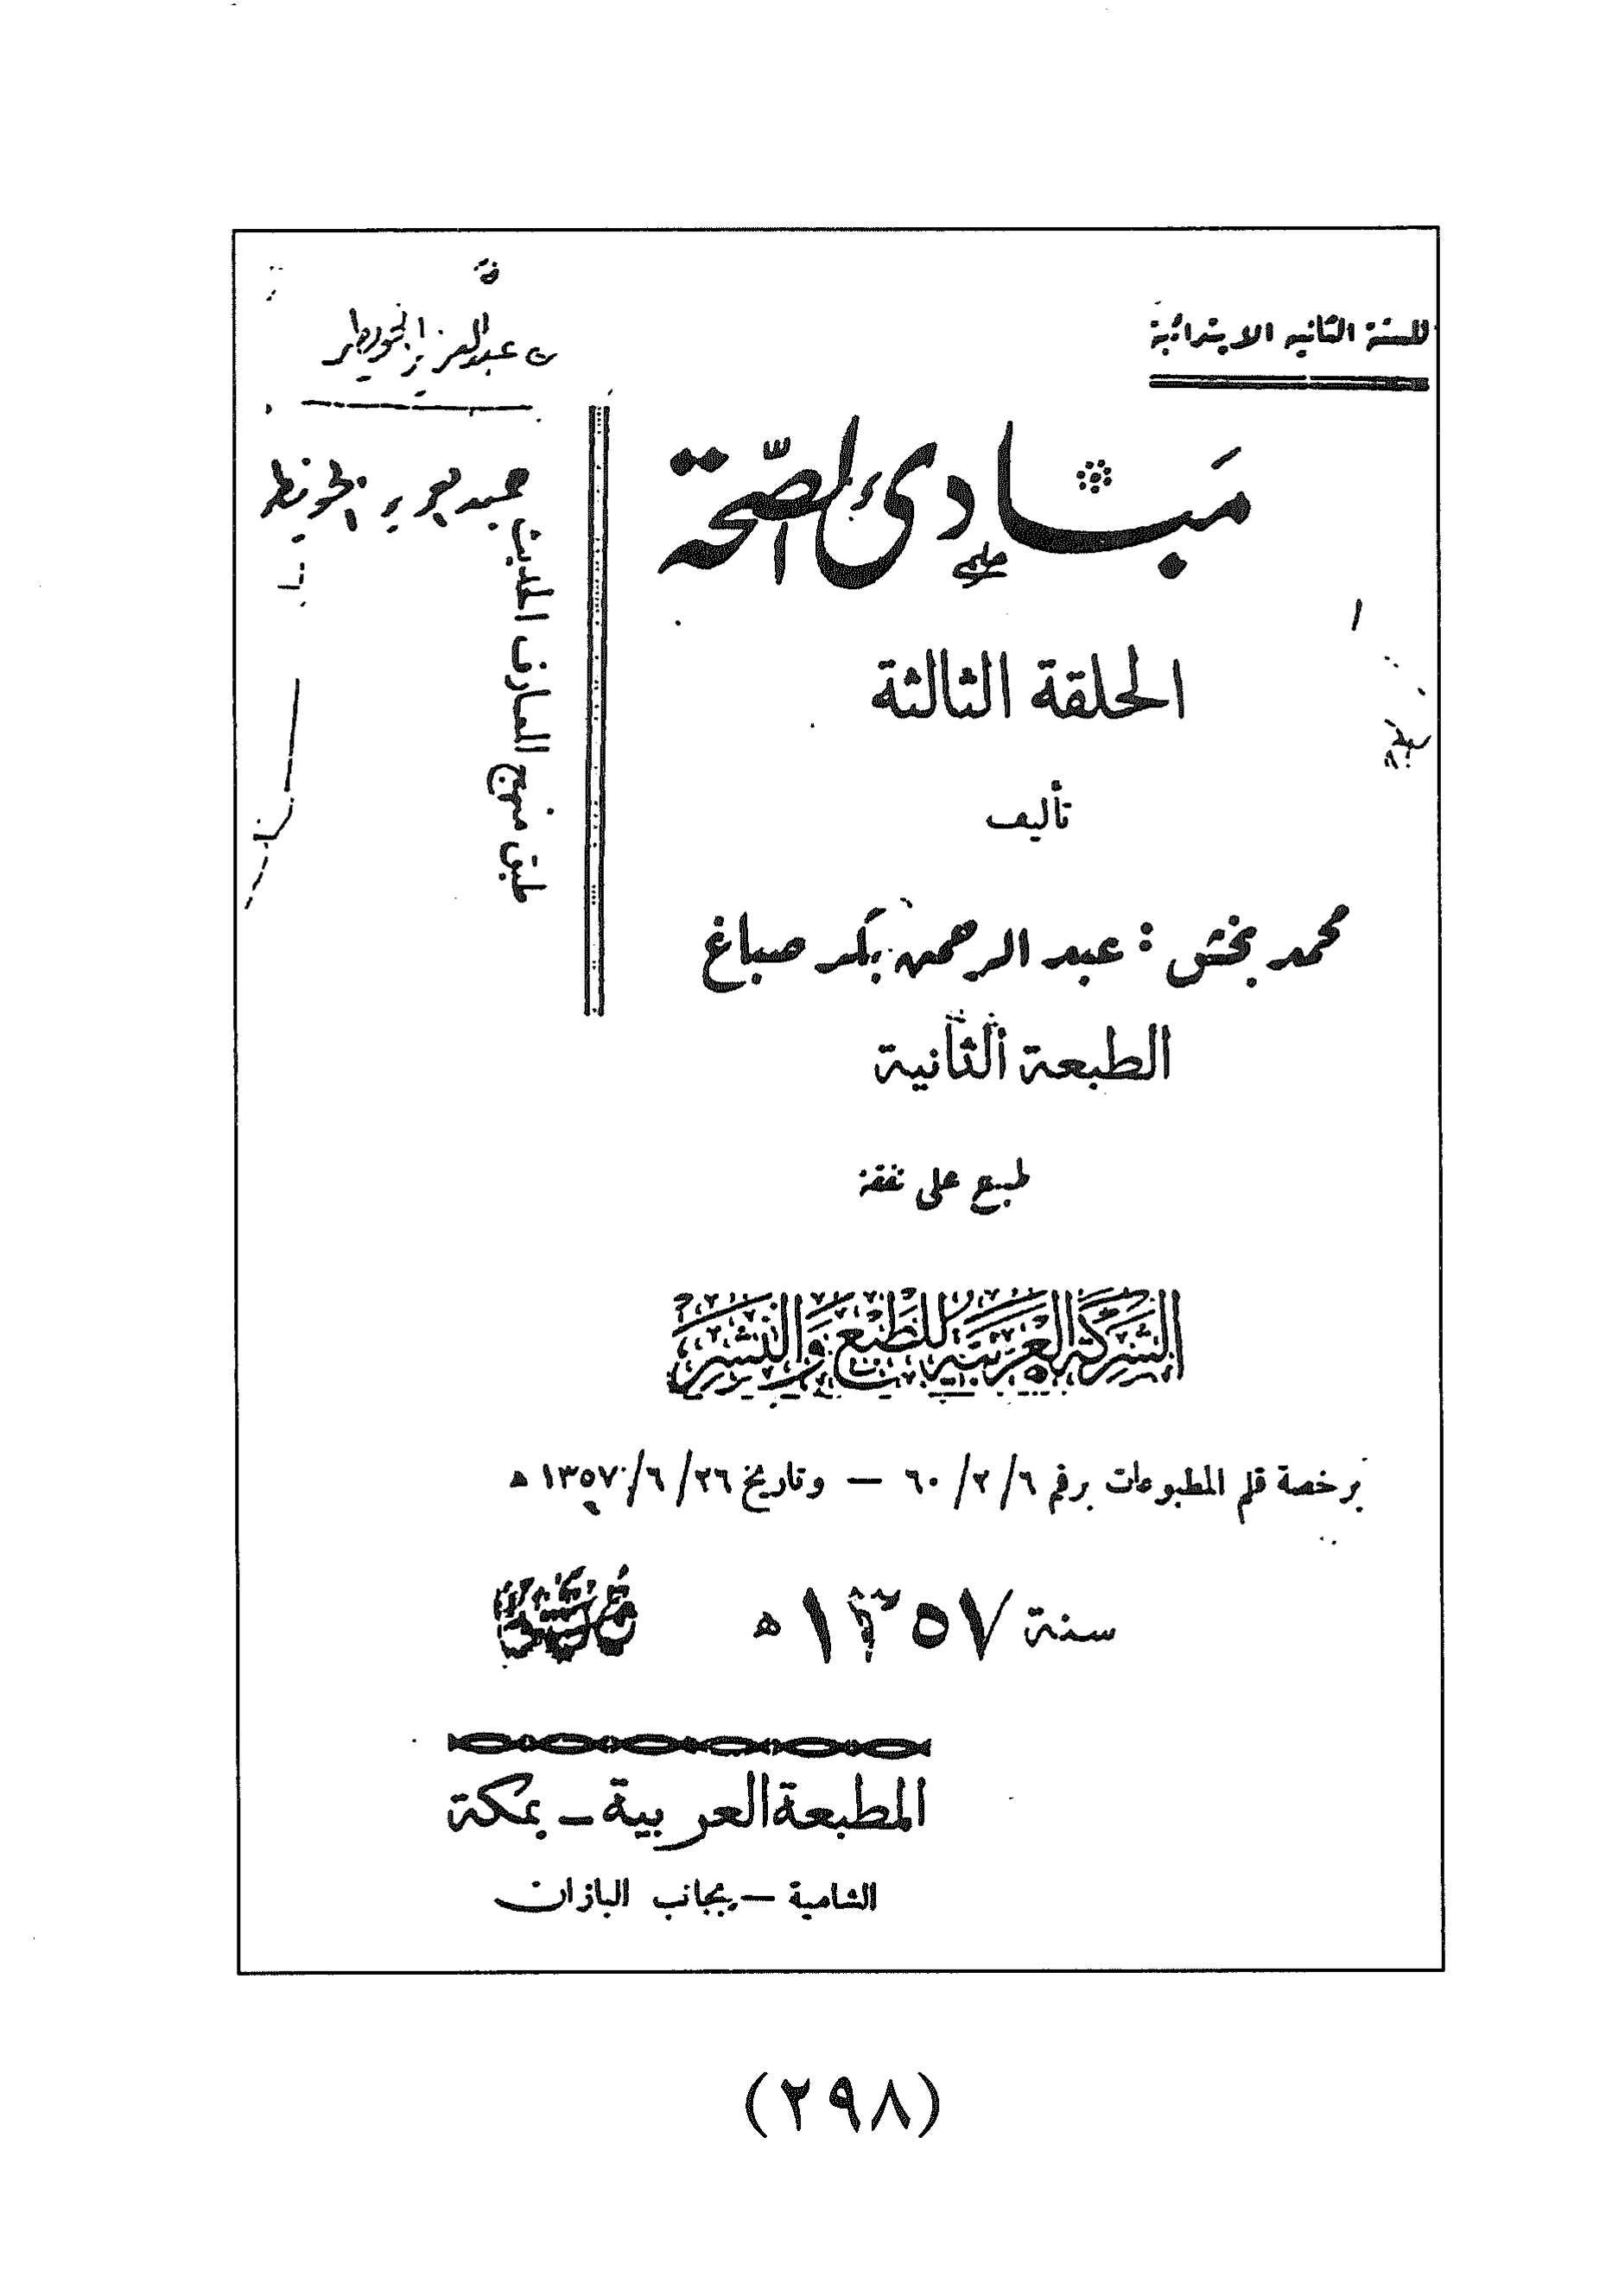 للسنة الثانية الابتدائية
عبدالعزيز الخويطر
عبدالعزيز الخويطر
مبادئ الصحة
طبق منهج المعارف الحديث
الحلقة الثالثة
تأليف
محمد بخش : عبد الرحمن بكر صباغ
الطبعة الثانية
طبع على نفقة
الشركة العربية للطبع والنشر
برخصة قلم المطبوعات برقم ٦/ ٢/ ٦٠ — وتاريخ ٢٦/ ٦/ ١٣٥٧ ه
سنة ١٣٥٧ ه
المطبعة العربية ـ بمكة
الشامية — بجانب البازان
(٢٩٨)